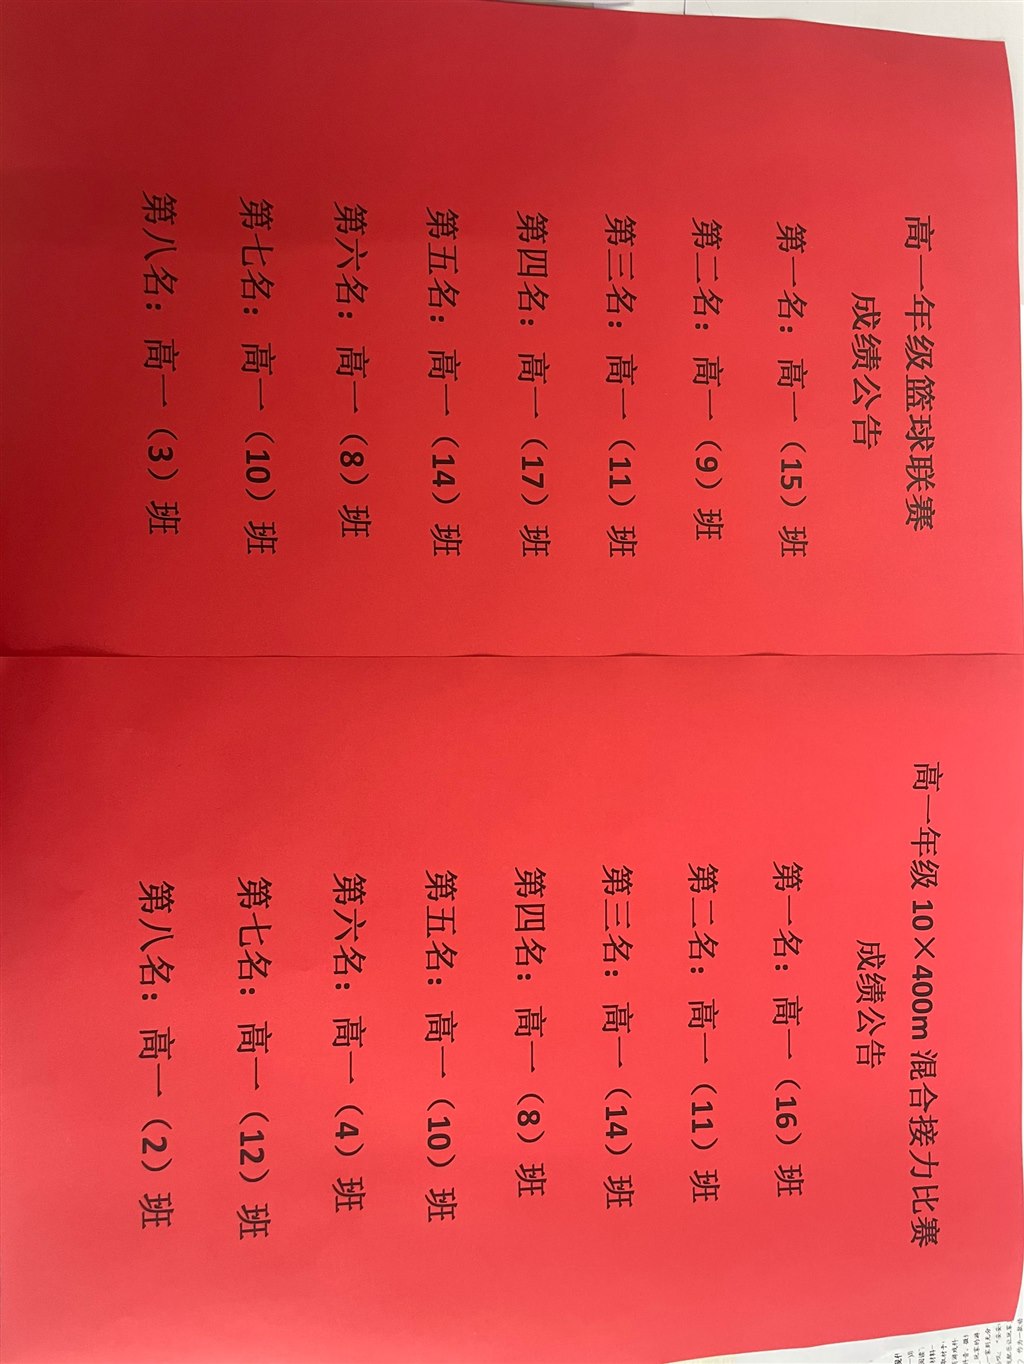 高一年级篮球联赛
成绩公告
第一名：高一（15）班
第二名：高一（9）班
第三名：高一（11）班
第四名：高一（17）班
第五名：高一（14）班
第六名：高一（8）班
第七名：高一（10）班
第八名：高一（3）班
高一年级 10×400m 混合接力比赛
成绩公告
第一名：高一（16）班
第二名：高一（11）班
第三名：高一（14）班
第四名：高一（8）班
第五名：高一（10）班
第六名：高一（4）班
第七名：高一（12）班
第八名：高一（2）班